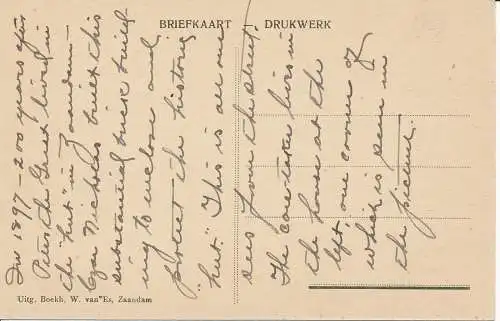 BRIEFKAART — DRUKWERK
In 1897 – 200 years after
Peter the Great lived in
the "hut" in Zaandam –
Czar Nicholas built this
substantial brick build-
ing to enclose and
protect the historic
"hut." This is all one
sees from the street.
The care-taker lives in
the house at the
left one corner of
which is seen in
the picture.
Uitg. Boekh. W. van Es, Zaandam